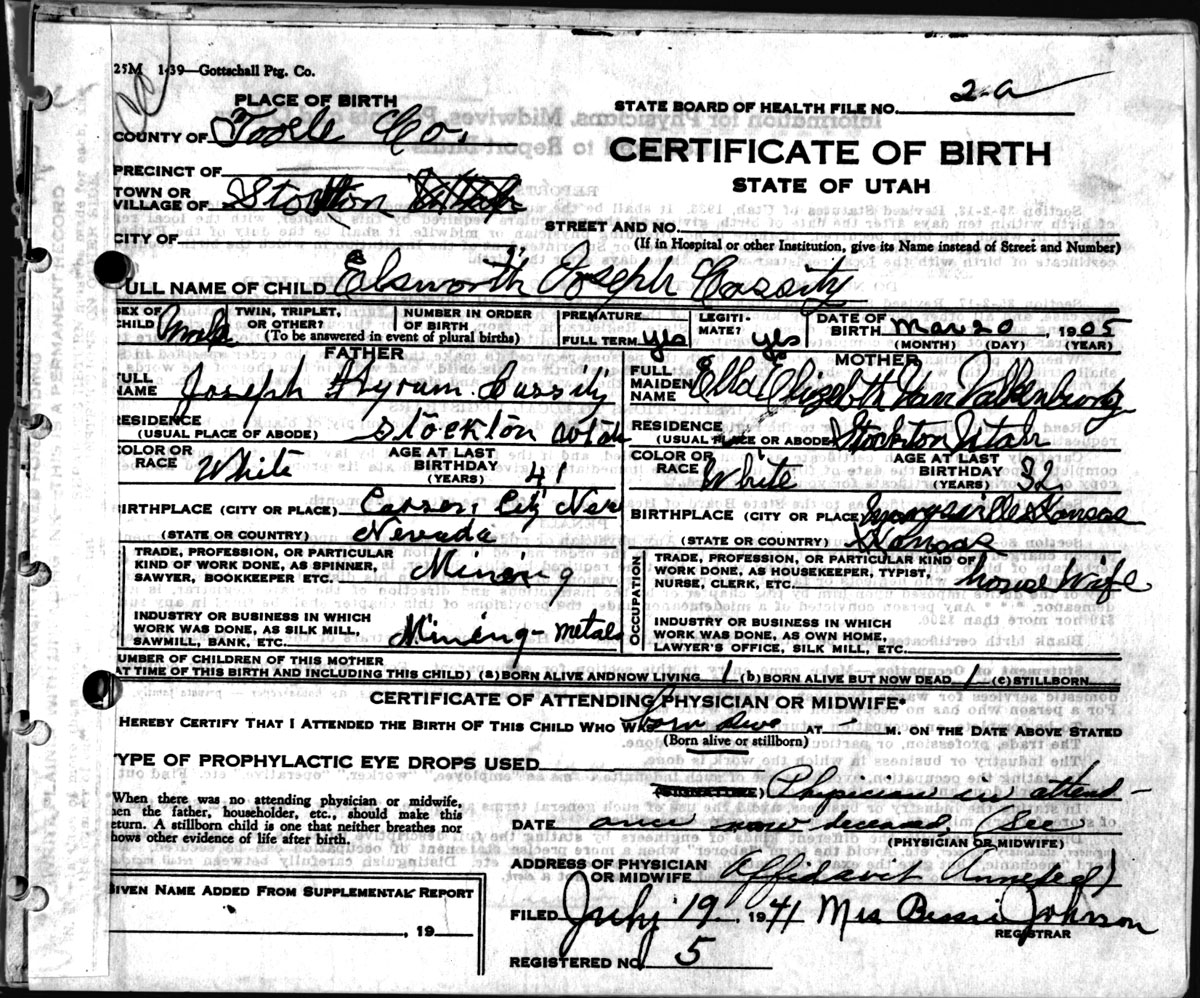 25M 1-39—Gottschall Ptg. Co.
STATE BOARD OF HEALTH FILE NO. 2-a
PLACE OF BIRTH
COUNTY OF Tooele Co.
CERTIFICATE OF BIRTH
STATE OF UTAH
PRECINCT OF
TOWN OR
VILLAGE OF Stockton Utah
STREET AND NO.
(If in Hospital or other Institution, give its Name instead of Street and Number)
CITY OF
FULL NAME OF CHILD Elsworth Joseph Cassity
SEX OF CHILD Male
TWIN, TRIPLET, OR OTHER?
NUMBER IN ORDER OF BIRTH
(To be answered in event of plural births)
PREMATURE
FULL TERM yes
LEGITIMATE? yes
DATE OF BIRTH Mar 20 1905
(MONTH) (DAY) (YEAR)
FATHER
FULL NAME Joseph Hyrum Cassity
RESIDENCE
(USUAL PLACE OF ABODE) Stockton Utah
COLOR OR RACE White
AGE AT LAST BIRTHDAY (YEARS) 41
BIRTHPLACE (CITY OR PLACE) Carson City Nev
(STATE OR COUNTRY) Nevada
TRADE, PROFESSION, OR PARTICULAR
KIND OF WORK DONE, AS SPINNER,
SAWYER, BOOKKEEPER ETC. Mining
INDUSTRY OR BUSINESS IN WHICH
WORK WAS DONE, AS SILK MILL,
SAWMILL, BANK, ETC. Mining - metals
MOTHER
FULL MAIDEN NAME Ella Elizabeth Van Valkenburg
RESIDENCE
(USUAL PLACE OR ABODE) Stockton Utah
COLOR OR RACE White
AGE AT LAST BIRTHDAY (YEARS) 32
BIRTHPLACE (CITY OR PLACE Marysville Kansas
(STATE OR COUNTRY) Kansas
OCCUPATION
TRADE, PROFESSION, OR PARTICULAR KIND OF
WORK DONE, AS HOUSEKEEPER, TYPIST,
NURSE, CLERK, ETC. House Wife
INDUSTRY OR BUSINESS IN WHICH
WORK WAS DONE, AS OWN HOME,
LAWYER'S OFFICE, SILK MILL, ETC.
NUMBER OF CHILDREN OF THIS MOTHER
(AT TIME OF THIS BIRTH AND INCLUDING THIS CHILD) (a) BORN ALIVE AND NOW LIVING 1 (b) BORN ALIVE BUT NOW DEAD 1 (c) STILLBORN
CERTIFICATE OF ATTENDING PHYSICIAN OR MIDWIFE*
HEREBY CERTIFY THAT I ATTENDED THE BIRTH OF THIS CHILD WHO WAS born alive AT - M. ON THE DATE ABOVE STATED
(Born alive or stillborn)
TYPE OF PROPHYLACTIC EYE DROPS USED
When there was no attending physician or midwife,
then the father, householder, etc., should make this
return. A stillborn child is one that neither breathes nor
shows other evidence of life after birth.
(SIGNATURE) Physician in attend-
DATE ance now deceased, (See
(PHYSICIAN OR MIDWIFE)
ADDRESS OF PHYSICIAN
OR MIDWIFE Affidavit Annexed)
GIVEN NAME ADDED FROM SUPPLEMENTAL REPORT
, 19
FILED July 19 1941 Mrs Bessie Johnson
REGISTRAR
REGISTERED NO. 5